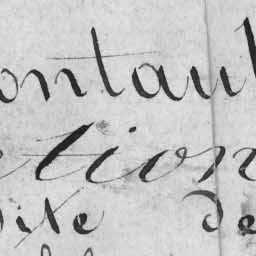 ontau
tion
dite de